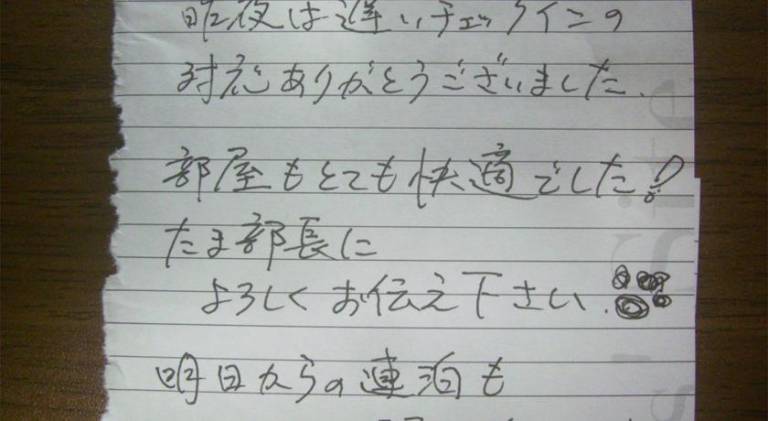 昨夜は遅いチェックインの
対応ありがとうございました.
部屋もとても快適でした!
たま部長に
よろしくお伝え下さい.
明日からの連泊も